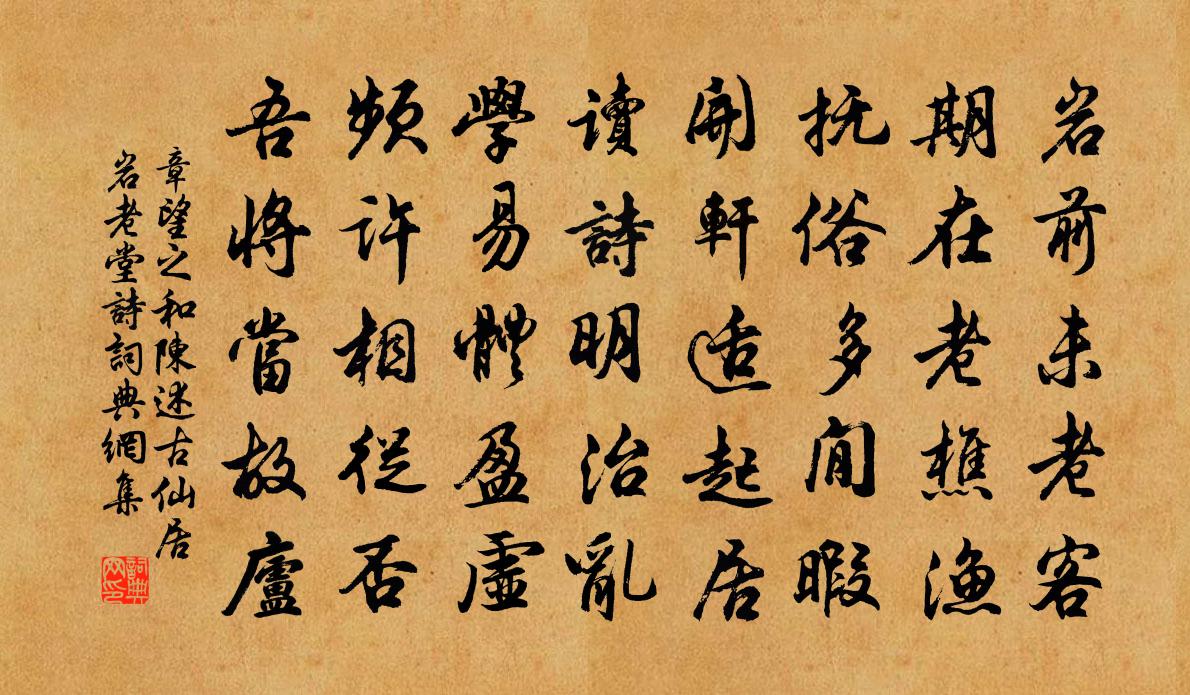 岩前未老客
期在老樵漁
抚俗多閒暇
開軒适起居
讀詩明治亂
學易體盈虛
頻許相從否
吾將當故廬
章望之和陳述古仙居
岩老堂詩詞典網集
詞典网印